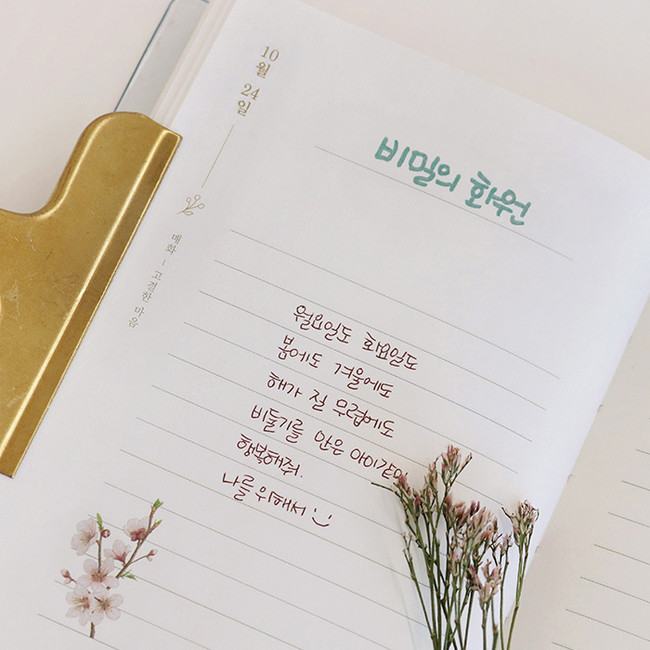 10월 24일
매화 - 고결한 마음
비밀의 화원
월요일도 화요일도
봄에도 겨울에도
해가 질 무렵에도
비둘기를 안은 아이같이
행복해줘.
나를 위해서 :)